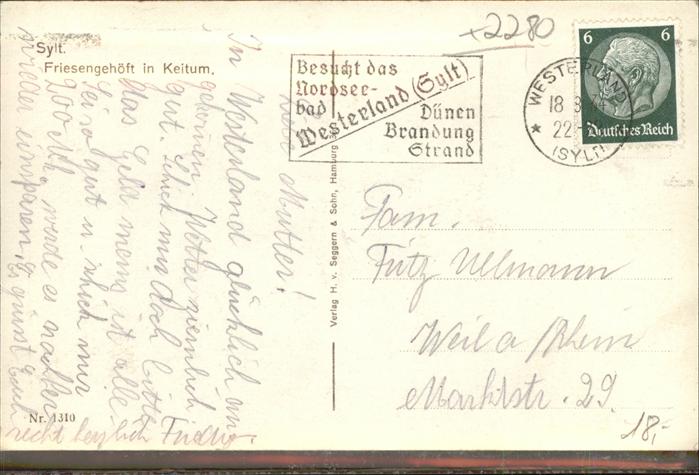 +2280
Sylt.
Friesengehöft in Keitum.
Besucht das
Nordsee-
bad
Westerland (Sylt)
Dünen
Brandung
Strand
WESTERLAND
18 3
22
* (SYLT)
6 6
Deutsches Reich
Liebe Mutter!
In Westerland glücklich an
gekommen, Wetter ziemlich
gut. Schick mir doch bitte
das Geld mein ist alle.
Sei so gut u. schick mir
200 M, werde es nachher
wieder einsparen. Es grüsst Euch
recht herzlich
Verlag H. v. Seggern & Sohn, Hamburg
Fam.
Fritz Ullmann
Weil a/Rhein
Marktstr. 29.
Nr. 1310
18,-